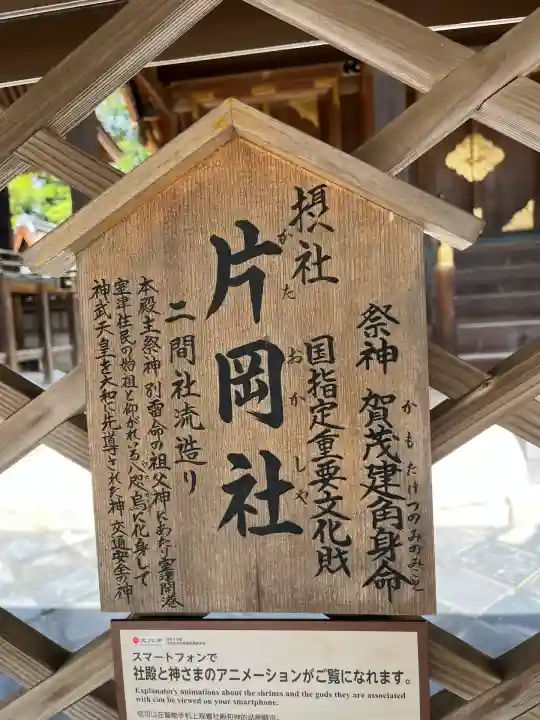 祭神 賀茂建角身命
かもたけつのみのみこと
国指定重要文化財
摂社
片岡社
かたおかしや
二間社流造り
本殿主祭神 別雷命の祖父神にあたり室津開港
室津住民の始祖と仰がれいる八咫烏に化身して
神武天皇を大和に先導された神 交通安全の神
文化庁
スマートフォンで
社殿と神さまのアニメーションがご覧になれます。
Explanatory animations about the shrines and the gods they are associated
with can be viewed on your smartphone.